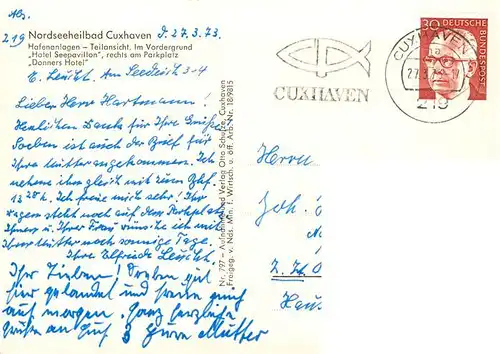 Abs.
219 Nordseeheilbad Cuxhaven, d. 27.3.73.
Hafenanlagen – Teilansicht. Im Vordergrund
„Hotel Seepavillon", rechts am Parkplatz
„Donners Hotel"
Am Seedeich 3-4
Lieber Herr Hartmann!
Herzlichen Dank für Ihre Grüße
Soeben ist auch der Brief für
Ihre Mutter angekommen. Ich
nehme ihn gleich mit zum Bhf.
Ich freue mich sehr! Ihr
Wagen steht noch auf dem Parkplatz
Ihnen u. Ihrer Frau wünsche ich mit
Ihrer Mutter noch sonnige Tage.
Ihre Elfriede
Ihr Lieben! Soeben gut
hier gelandet und freue mich
auf morgen. Ganz herzliche
Grüße an Euch 3 Eure Mutter
Nr. 797 – Aufnahme und Verlag Otto Schulze, Cuxhaven
Freigeg. v. Nds. Min. f. Wirtsch. u. öff. Arb. Nr. 18/9815
CUXHAVEN
CUXHAVEN
27.3.73
219
30 DEUTSCHE BUNDESPOST
Herrn
Joh.